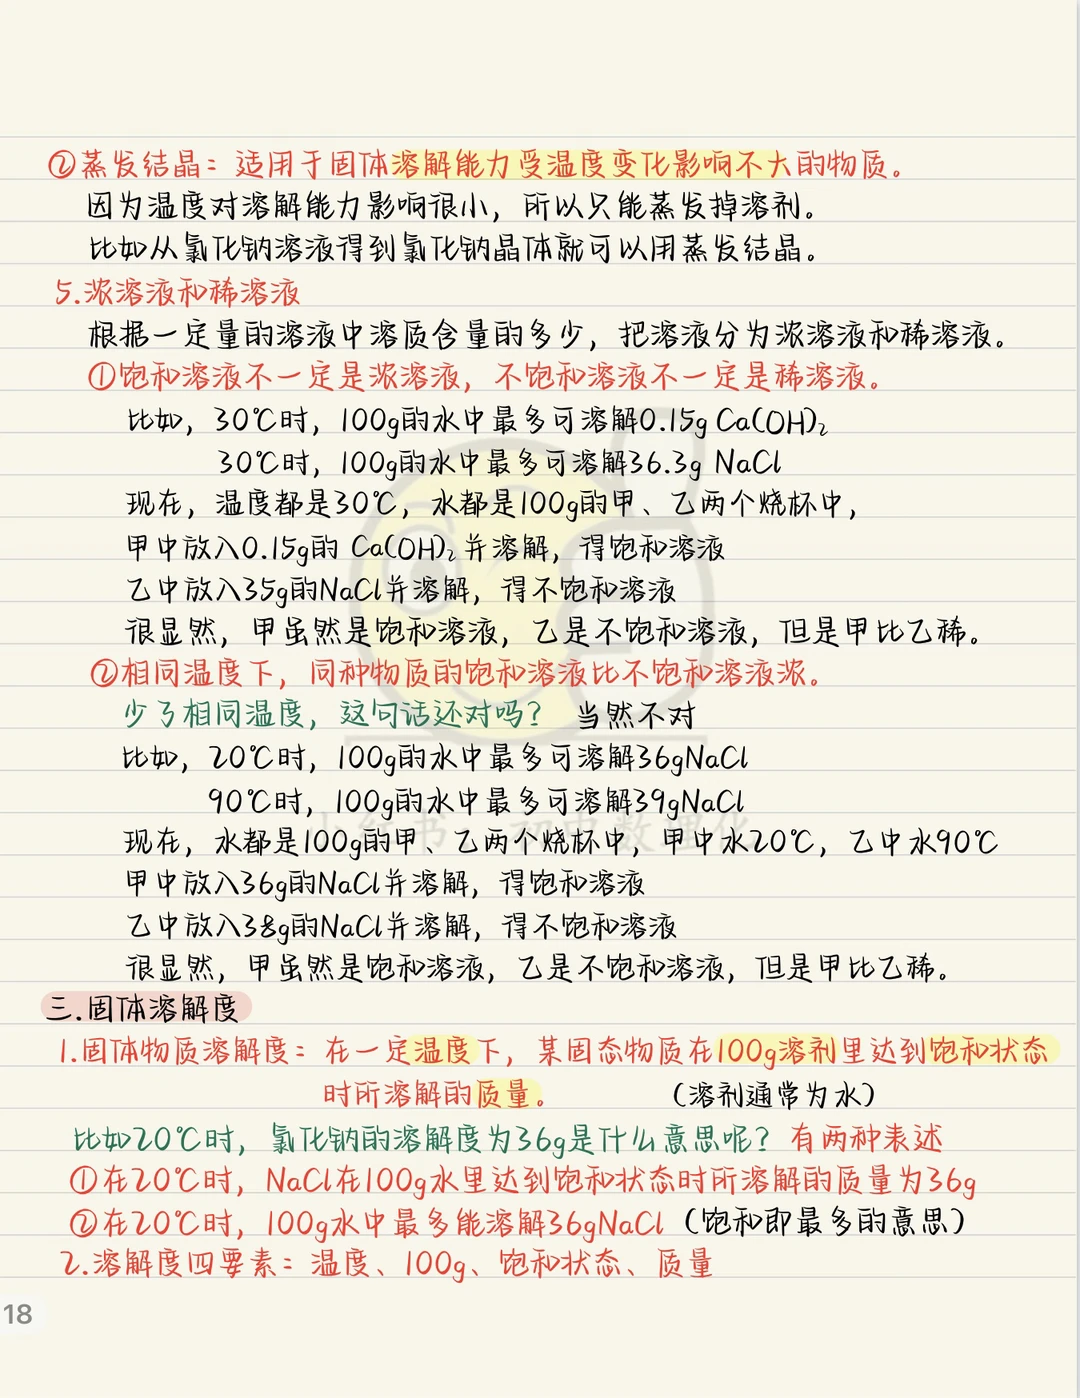 ②蒸发结晶：适用于固体溶解能力受温度变化影响不大的物质。
因为温度对溶解能力影响很小，所以只能蒸发掉溶剂。
比如从氯化钠溶液得到氯化钠晶体就可以用蒸发结晶。
5.浓溶液和稀溶液
根据一定量的溶液中溶质含量的多少，把溶液分为浓溶液和稀溶液。
①饱和溶液不一定是浓溶液，不饱和溶液不一定是稀溶液。
比如，30℃时，100g的水中最多可溶解0.15g Ca(OH)₂
30℃时，100g的水中最多可溶解36.3g NaCl
现在，温度都是30℃，水都是100g的甲、乙两个烧杯中，
甲中放入0.15g的 Ca(OH)₂并溶解，得饱和溶液
乙中放入35g的NaCl并溶解，得不饱和溶液
很显然，甲虽然是饱和溶液，乙是不饱和溶液，但是甲比乙稀。
②相同温度下，同种物质的饱和溶液比不饱和溶液浓。
少了相同温度，这句话还对吗？ 当然不对
比如，20℃时，100g的水中最多可溶解36gNaCl
90℃时，100g的水中最多可溶解39gNaCl
小红书 初中数理化
现在，水都是100g的甲、乙两个烧杯中，甲中水20℃，乙中水90℃
甲中放入36g的NaCl并溶解，得饱和溶液
乙中放入38g的NaCl并溶解，得不饱和溶液
很显然，甲虽然是饱和溶液，乙是不饱和溶液，但是甲比乙稀。
三.固体溶解度
1.固体物质溶解度：在一定温度下，某固态物质在100g溶剂里达到饱和状态
时所溶解的质量。 （溶剂通常为水）
比如20℃时，氯化钠的溶解度为36g是什么意思呢？有两种表述
①在20℃时，NaCl在100g水里达到饱和状态时所溶解的质量为36g
②在20℃时，100g水中最多能溶解36gNaCl（饱和即最多的意思）
2.溶解度四要素：温度、100g、饱和状态、质量
18